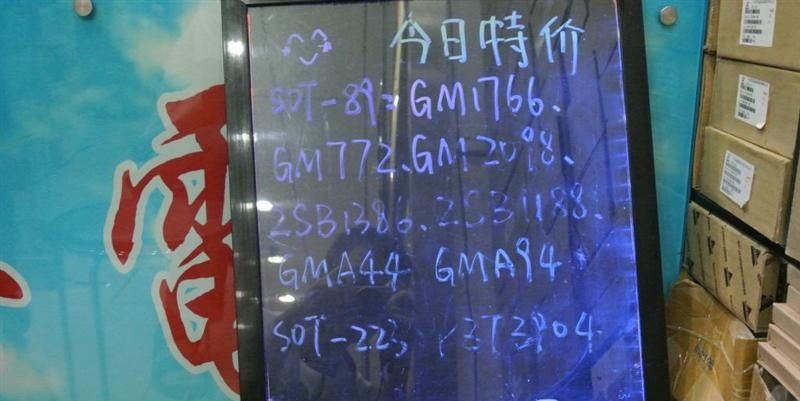 今日特价
SOT-89: GM1766、
GM772、GM2098、
2SB1386、2SB1188、
GMA44 GMA94
SOT-223 PZT3904
電